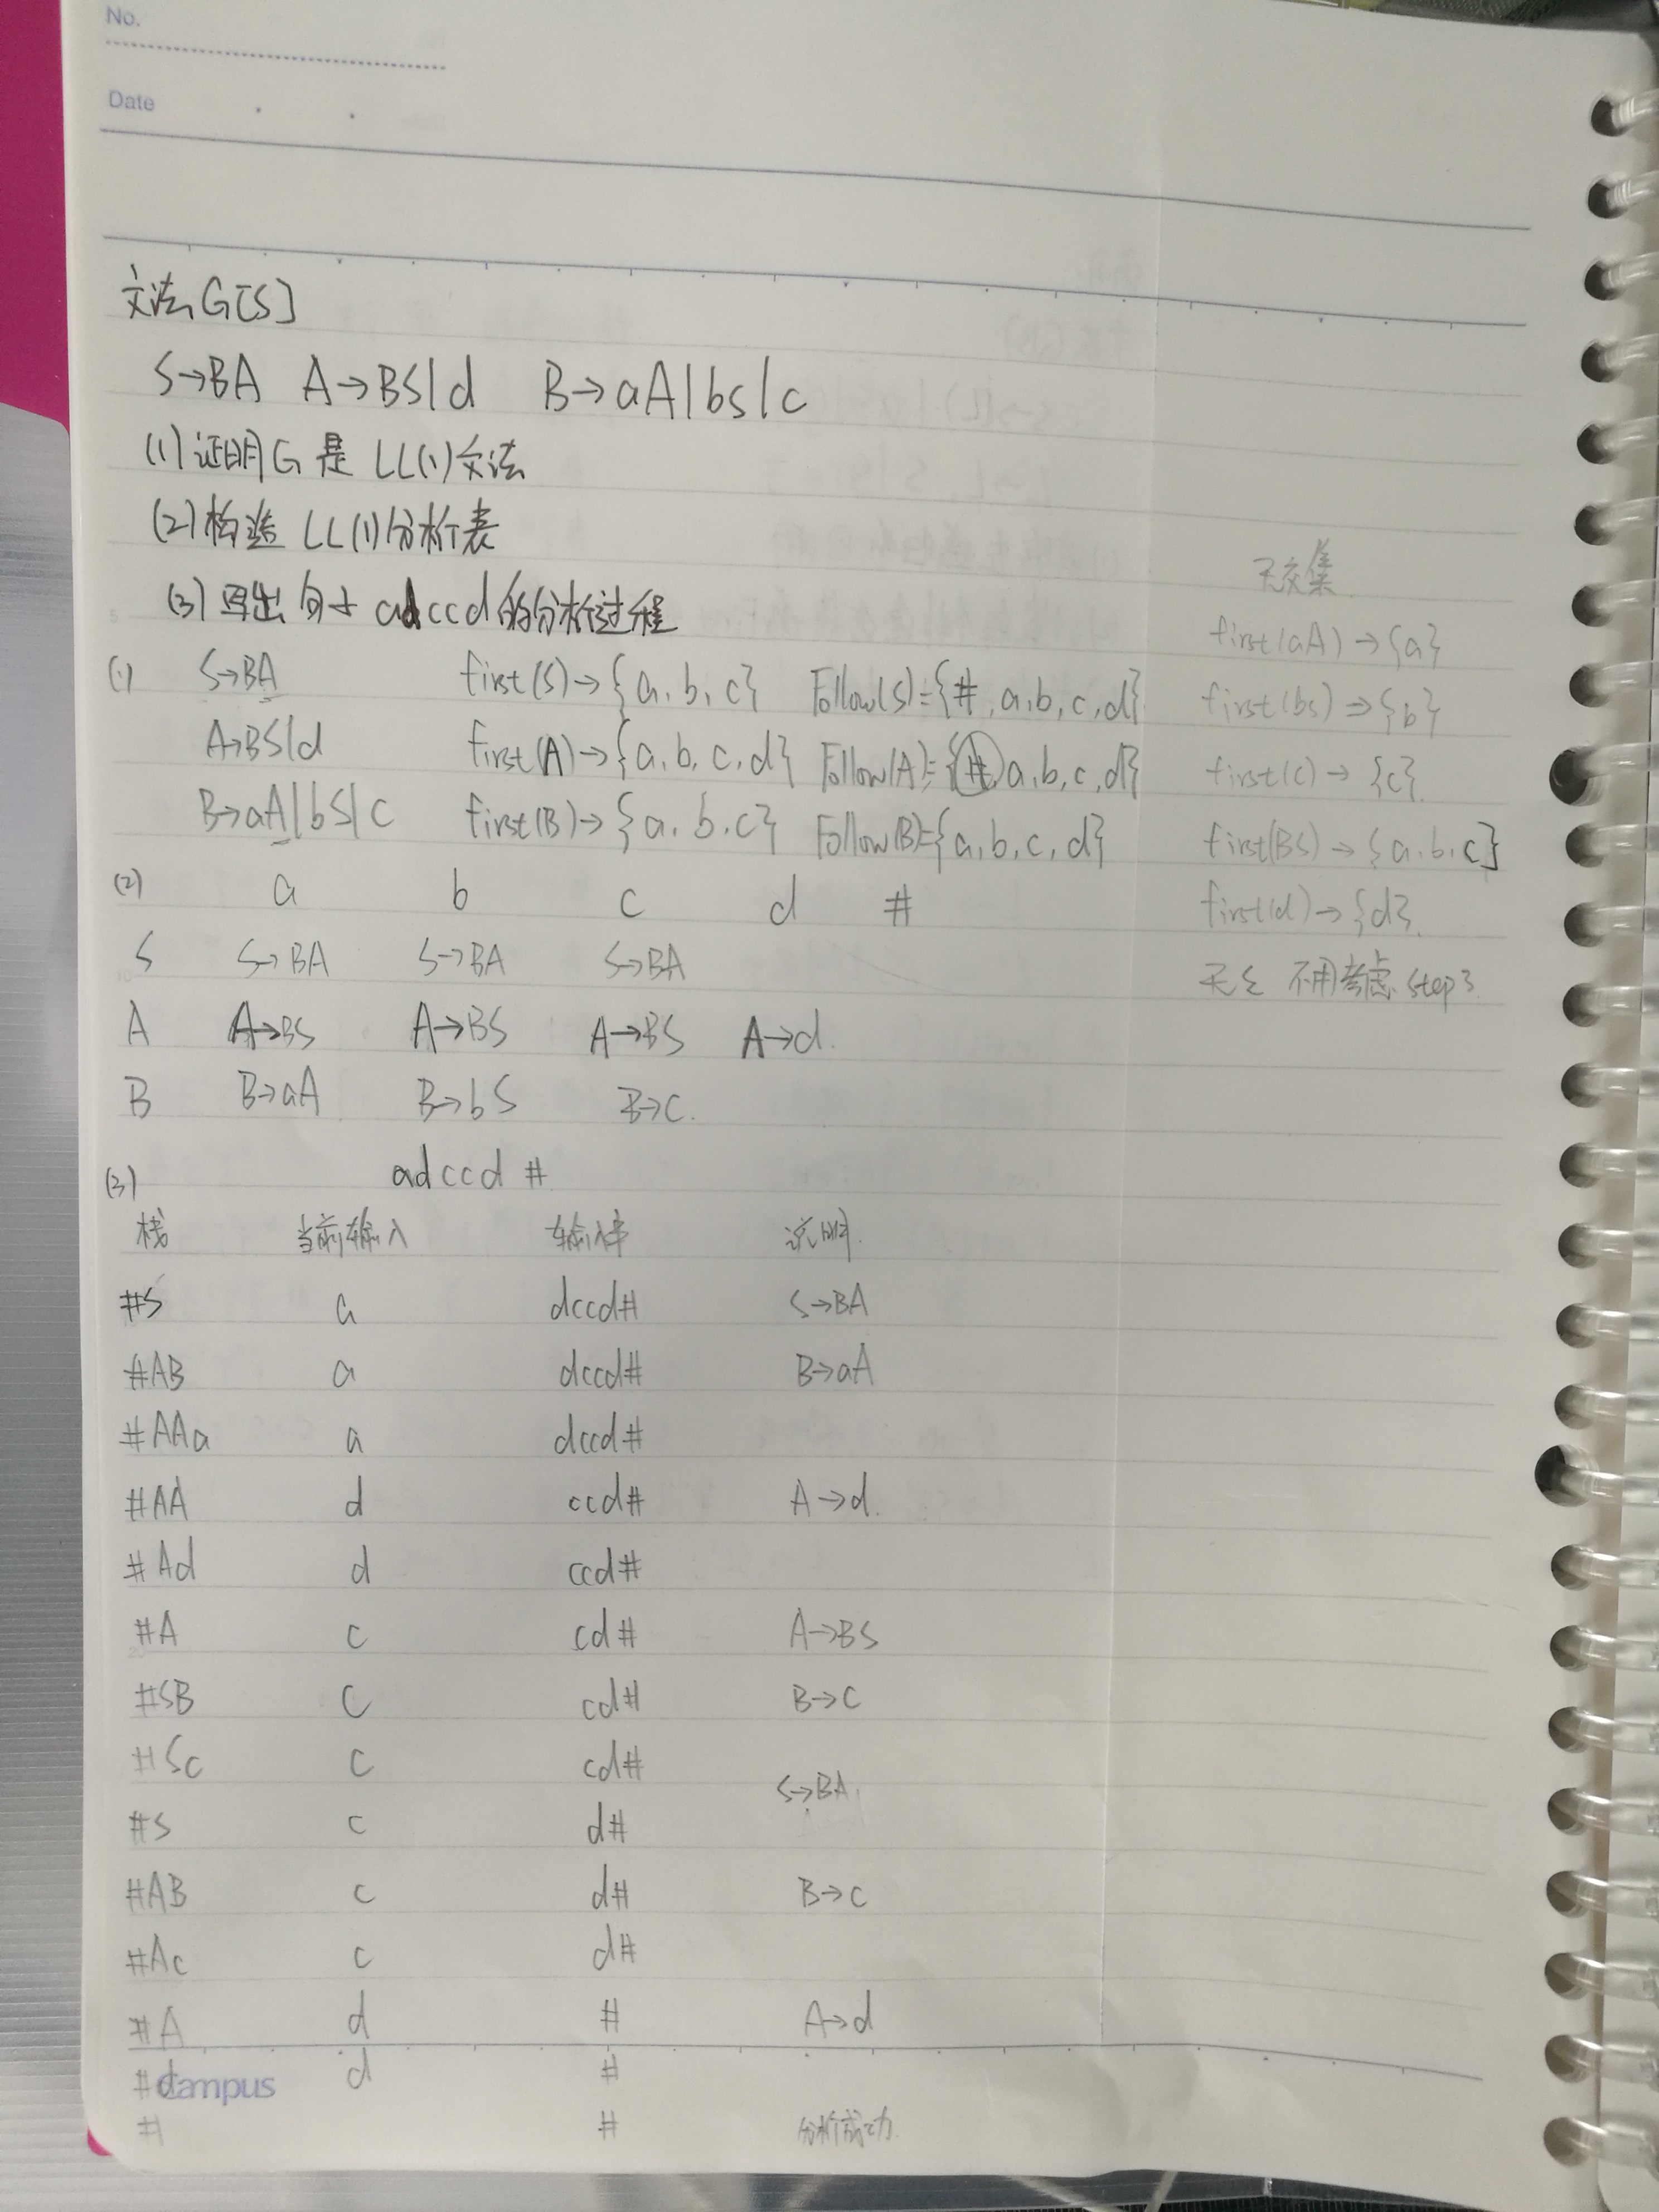 No.
Date
文法G[S]
S→BA A→BS|d B→aA|bS|c
(1)证明G是LL(1)文法
(2)构造LL(1)分析表
(3)写出句子adccd的分析过程
无交集
(1) S→BA first(S)→{a,b,c} Follow(S)={#,a,b,c,d} first(aA)→{a}
A→BS|d first(A)→{a,b,c,d} Follow(A)={#,a,b,c,d} first(bS)→{b}
first(c)→{c}
B→aA|bS|c first(B)→{a,b,c} Follow(B)={a,b,c,d} first(BS)→{a,b,c}
(2) a b c d # first(d)→{d}
S S→BA S→BA S→BA 无ε 不用考虑step3
A A→BS A→BS A→BS A→d.
B B→aA B→bS B→c.
(3) adccd #
栈 当前输入 输入串 说明
#S a dccd# S→BA
#AB a dccd# B→aA
#AAa a dccd#
#AA d ccd# A→d.
#Ad d ccd#
#A c cd# A→BS
#SB c cd# B→c
#Sc c cd#
#S c d# S→BA
#AB c d# B→c
#Ac c d#
#A d # A→d
#d d #
Campus
# # 分析成功